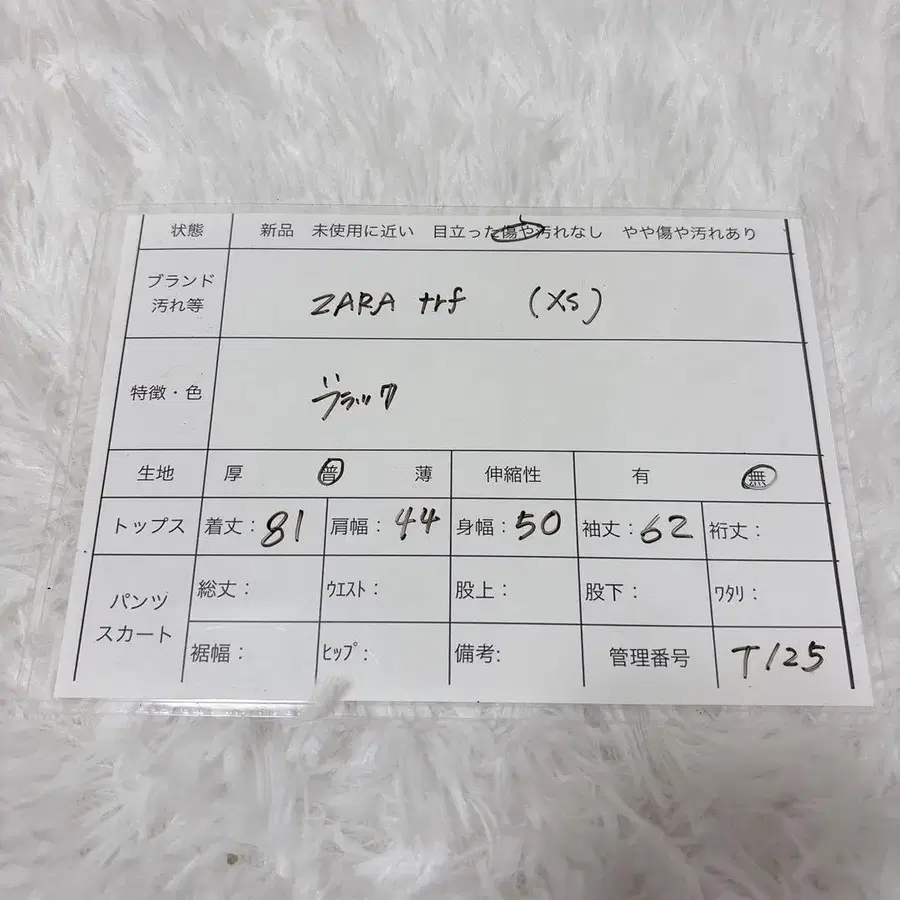 状態 新品 未使用に近い 目立った傷や汚れなし やや傷や汚れあり
ブランド
汚れ等 ZARA trf (XS)
特徴・色 ブラック
生地 厚 普 薄 伸縮性 有 無
トップス 着丈：81 肩幅：44 身幅：50 袖丈：62 裄丈：
パンツ
スカート
総丈： ｳｴｽﾄ： 股上： 股下： ﾜﾀﾘ：
裾幅： ﾋｯﾌﾟ： 備考: 管理番号 T125